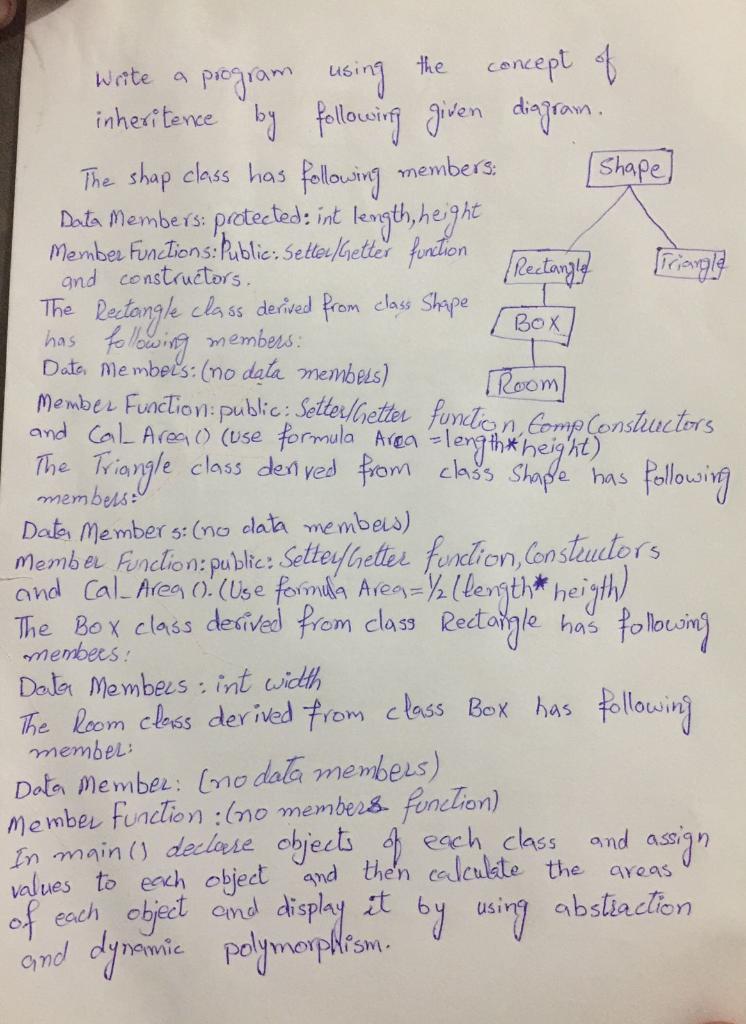 Write a program using the concept of
inheritence by following given diagram.
The shap class has following members:
Shape
Data Members: protected: int length, height
Member Functions: Public: Setter/Getter function
and constructors.
Rectangle
Triangle
The Rectangle class derived from class Shape
has following members:
Box
Data Members: (no data members)
Room
Member Function: public: Setter/Getter function, Comp Constructors
and Cal_Area() (use formula Area = length*height)
The Triangle class derived from class Shape has following
members:
Data Members: (no data members)
Member Function: public: Setter/Getter function, Constructors
and Cal_Area(). (Use formula Area = 1/2 (length* heigth)
The Box class derived from class Rectangle has following
members:
Data Members: int width
The Room class derived from class Box has following
member:
Data Member: (no data members)
Member Function: (no members function)
In main() declare objects of each class and assign
values to each object and then calculate the areas
of each object and display it by using abstraction
and dynamic polymorphism.